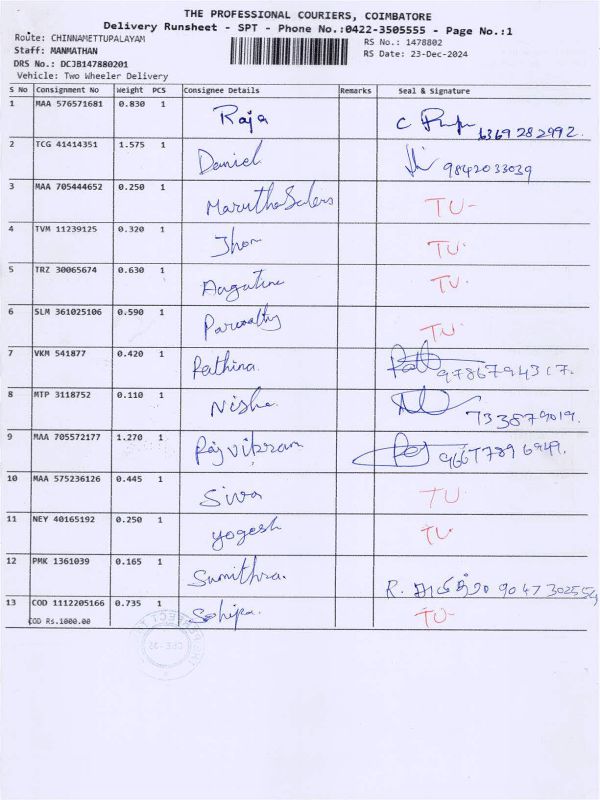 THE PROFESSIONAL COURIERS, COIMBATORE
Delivery Runsheet - SPT - Phone No.:0422-3505555 - Page No.:1
Route: CHINNAMETTUPALAYAM
RS No.: 1478802
Staff: MANMATHAN
RS Date: 23-Dec-2024
DRS No.: DCJB147880201
Vehicle: Two Wheeler Delivery
S No Consignment No Weight PCS Consignee Details Remarks Seal & Signature
1 MAA 576571681 0.830 1 Raja C 6369282992.
2 TCG 41414351 1.575 1 Daniel 9842033039
3 MAA 705444652 0.250 1 Marutha Salers TU-
4 TVM 11239125 0.320 1 Jhon TU.
5 TRZ 30065674 0.630 1 TU.
6 SLM 361025106 0.590 1 TU.
7 VKM 541877 0.420 1 Rathina. 9786794317.
8 MTP 3118752 0.110 1 Nisha 733879019.
9 MAA 705572177 1.270 1 Rajvikram
10 MAA 575236126 0.445 1 Siva TU
11 NEY 40165192 0.250 1 yogesh TU.
12 PMK 1361039 0.165 1 Sumithra. R. 9047302554
13 COD 1112205166 0.735 1 TU-
COD Rs.1000.00